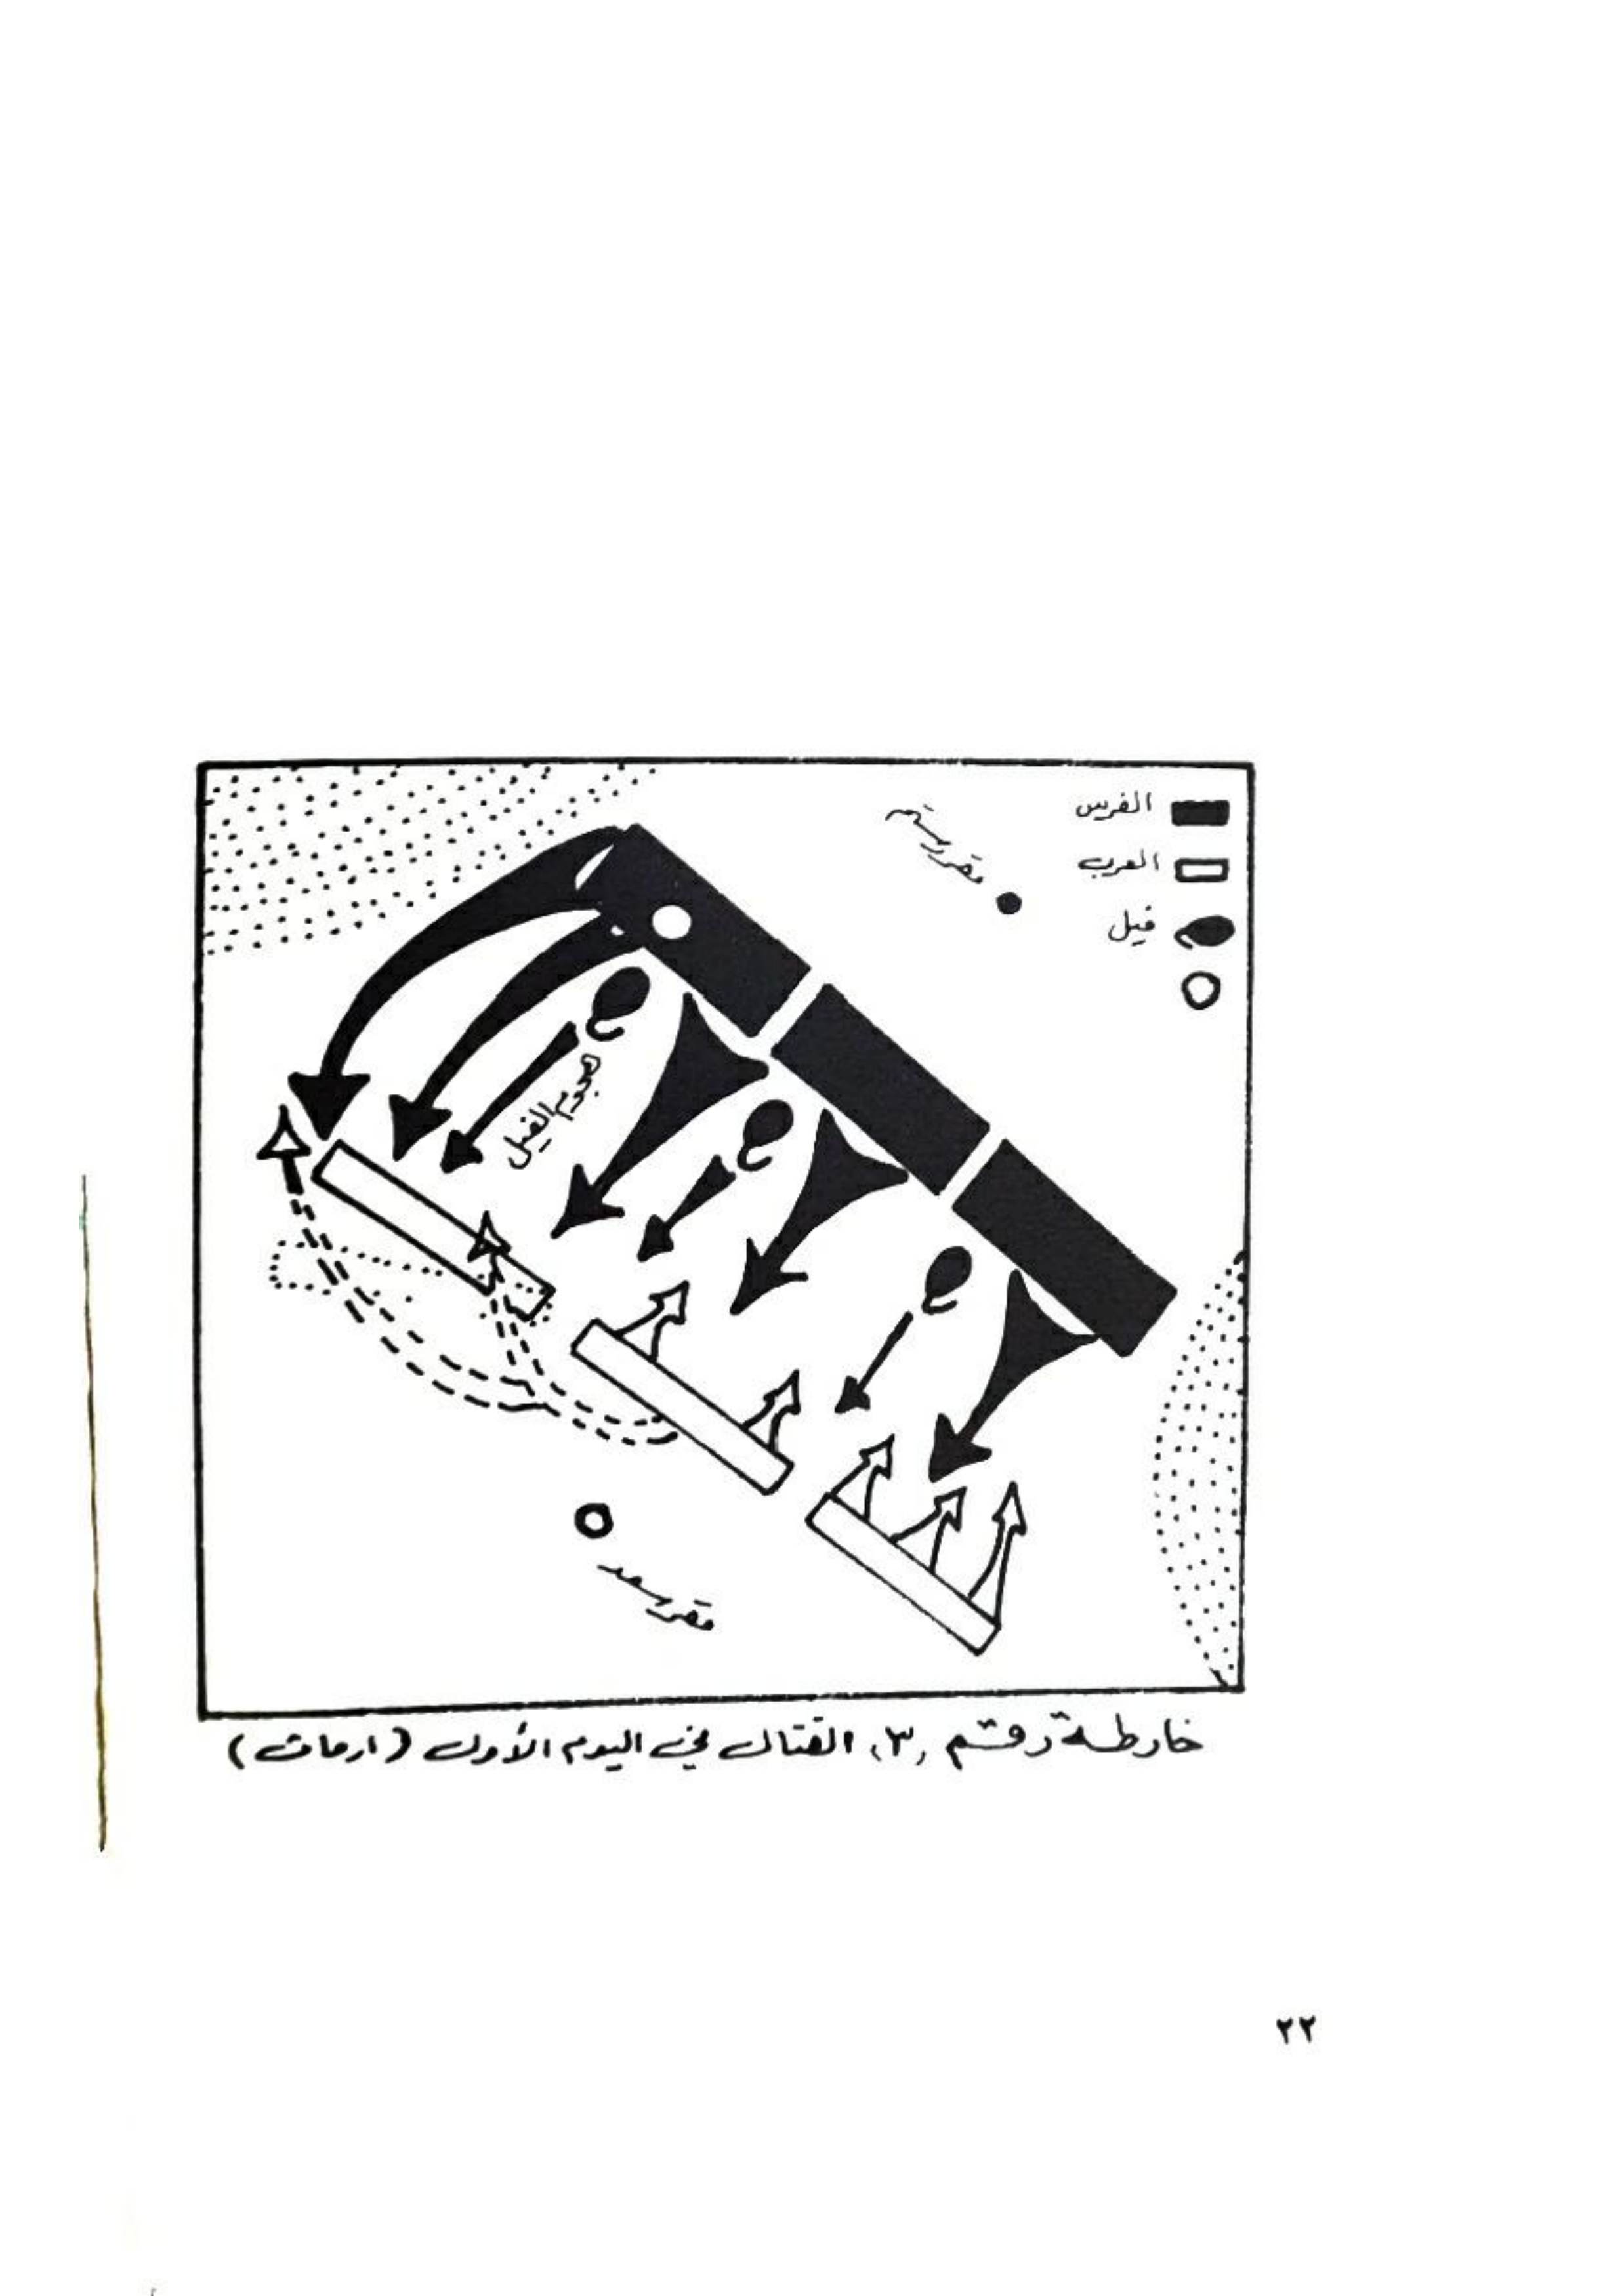 الفرس
العرب
فيل
مقر رستم
هجوم الفيل
مقر سعد
خارطة رقم (٣) القتال في اليوم الأول (ارماث)
٢٢